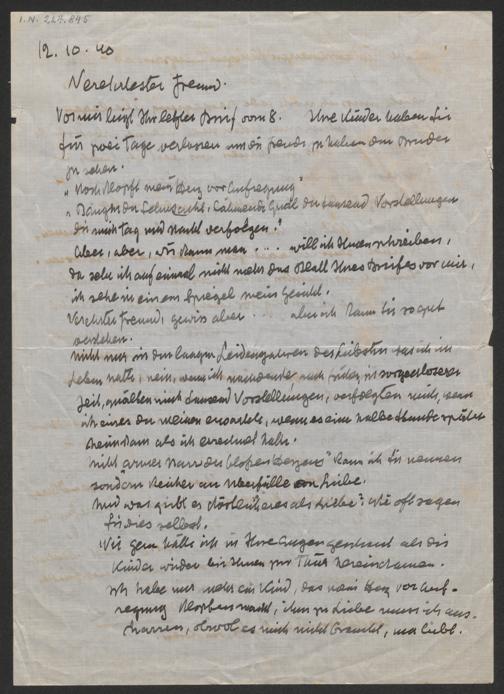 I.N. 224.845
12.10.40
Verehrtester Freund.
Vor mir liegt Ihr letzter Brief vom 8. Ihre Kinder haben Sie
für zwei Tage verlassen um die Freude zu haben den Bruder
zu sehen.
„Noch klopft mein Herz vor Aufregung"
„Bängnis der Sehnsucht, lähmende Qual der tausend Vorstellungen
die mich Tag und Nacht verfolgen."
Aber, aber, wie kann man ... will ich Ihnen schreiben,
da sehe ich auf einmal nicht mehr das Blatt Ihres Briefes vor mir,
ich sehe in einem Spiegel mein Gesicht.
Verehrter Freund, gewiss aber ... aber ich kann Sie so gut
verstehen.
Nicht nur in den langen Leidensjahren des Liebsten das ich im
Leben hatte, nein, wenn ich nachdenke, auch früher, in sorgenloser
Zeit, quälten mich tausend Vorstellungen, verfolgten mich, wenn
ich einen der meinen erwartete, wenn es eine halbe Stunde später
war als ich gerechnet habe.
Nicht „armer Narr des klopfenden Herzens" kann ich Sie nennen
sondern Reicher an Überfülle von Liebe.
Und was giebt es Köstlicheres als Liebe? Wie oft sagen
Sie dies selbst.
Wie gern hätte ich in Ihre Augen geschaut als die
Kinder wieder bei Ihnen zur Thür hereinkamen.
Ich habe nur mehr ein Kind, das mein Herz vor Auf-
regung klopfen macht, ihm zu Liebe muss ich aus-
harren, obwol es mich nicht braucht, nur liebt.